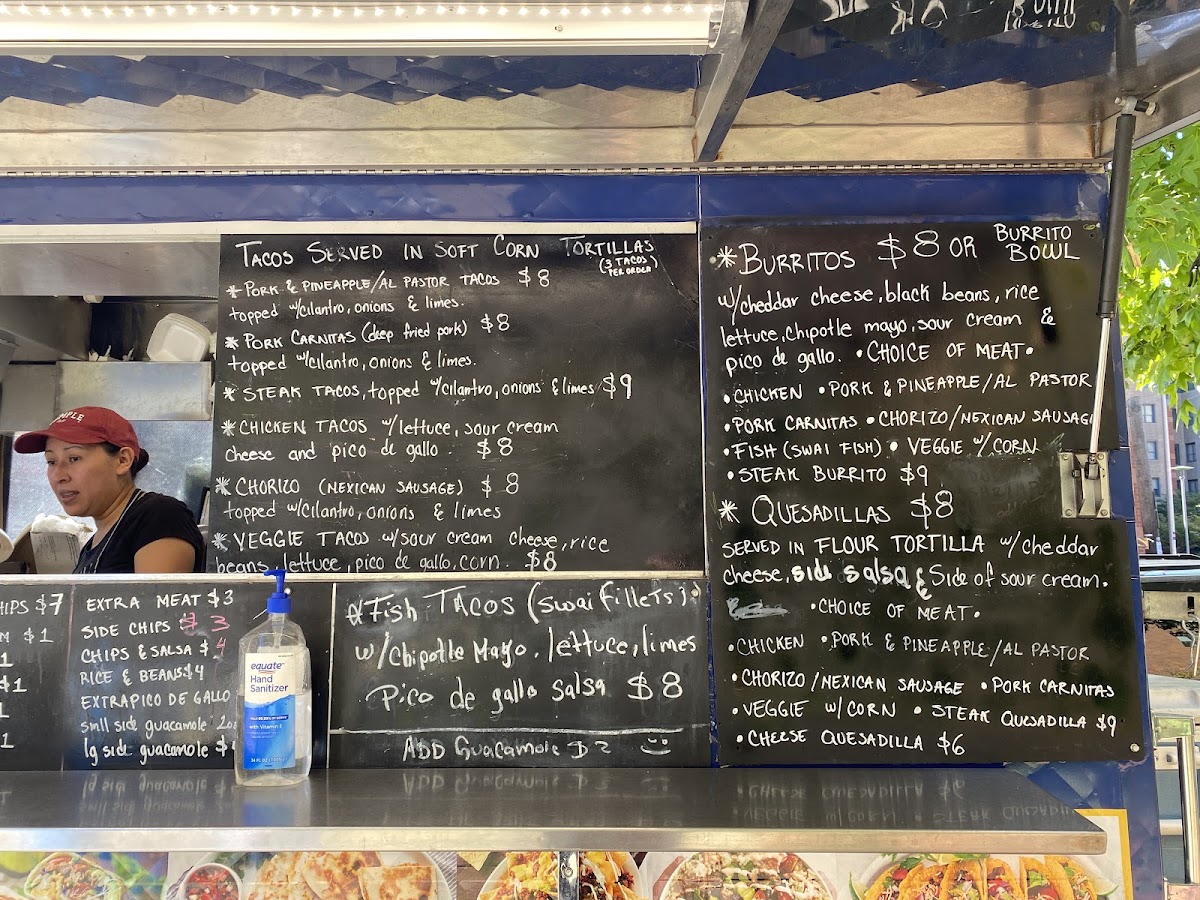 TACOS SERVED IN SOFT CORN TORTILLAS
(3 TACOS PER ORDER)
* PORK & PINEAPPLE/AL PASTOR TACOS $8
topped w/cilantro, onions & limes.
* PORK CARNITAS (deep fried pork) $8
topped w/cilantro, onions & limes.
* STEAK TACOS, topped w/cilantro, onions & limes $9
* CHICKEN TACOS w/lettuce, sour cream
cheese and pico de gallo. $8
* CHORIZO (MEXICAN SAUSAGE) $8
topped w/cilantro, onions & limes
* VEGGIE TACOS w/sour cream cheese, rice
beans, lettuce, pico de gallo, corn. $8
* BURRITOS $8 OR BURRITO BOWL
w/cheddar cheese, black beans, rice
lettuce, chipotle mayo, sour cream &
pico de gallo. • CHOICE OF MEAT •
• CHICKEN • PORK & PINEAPPLE/AL PASTOR
• PORK CARNITAS • CHORIZO/MEXICAN SAUSAGE
• FISH (SWAI FISH) • VEGGIE w/CORN
• STEAK BURRITO $9
* QUESADILLAS $8
SERVED IN FLOUR TORTILLA w/cheddar
cheese, side salsa & Side of sour cream.
• CHOICE OF MEAT •
• CHICKEN • PORK & PINEAPPLE/AL PASTOR
• CHORIZO/MEXICAN SAUSAGE • PORK CARNITAS
• VEGGIE W/CORN • STEAK QUESADILLA $9
• CHEESE QUESADILLA $6
HIPS $7
M $1
1
$1
1
1
EXTRA MEAT $3
SIDE CHIPS $3
CHIPS & SALSA $4
RICE & BEANS $4
EXTRA PICO DE GALLO
smll side guacamole 2oz
lg side guacamole $
equate
Hand
Sanitizer
with Vitamin E
* Fish TACOS (swai fillets)
w/Chipotle Mayo. lettuce, limes
Pico de gallo salsa $8
ADD Guacamole $2